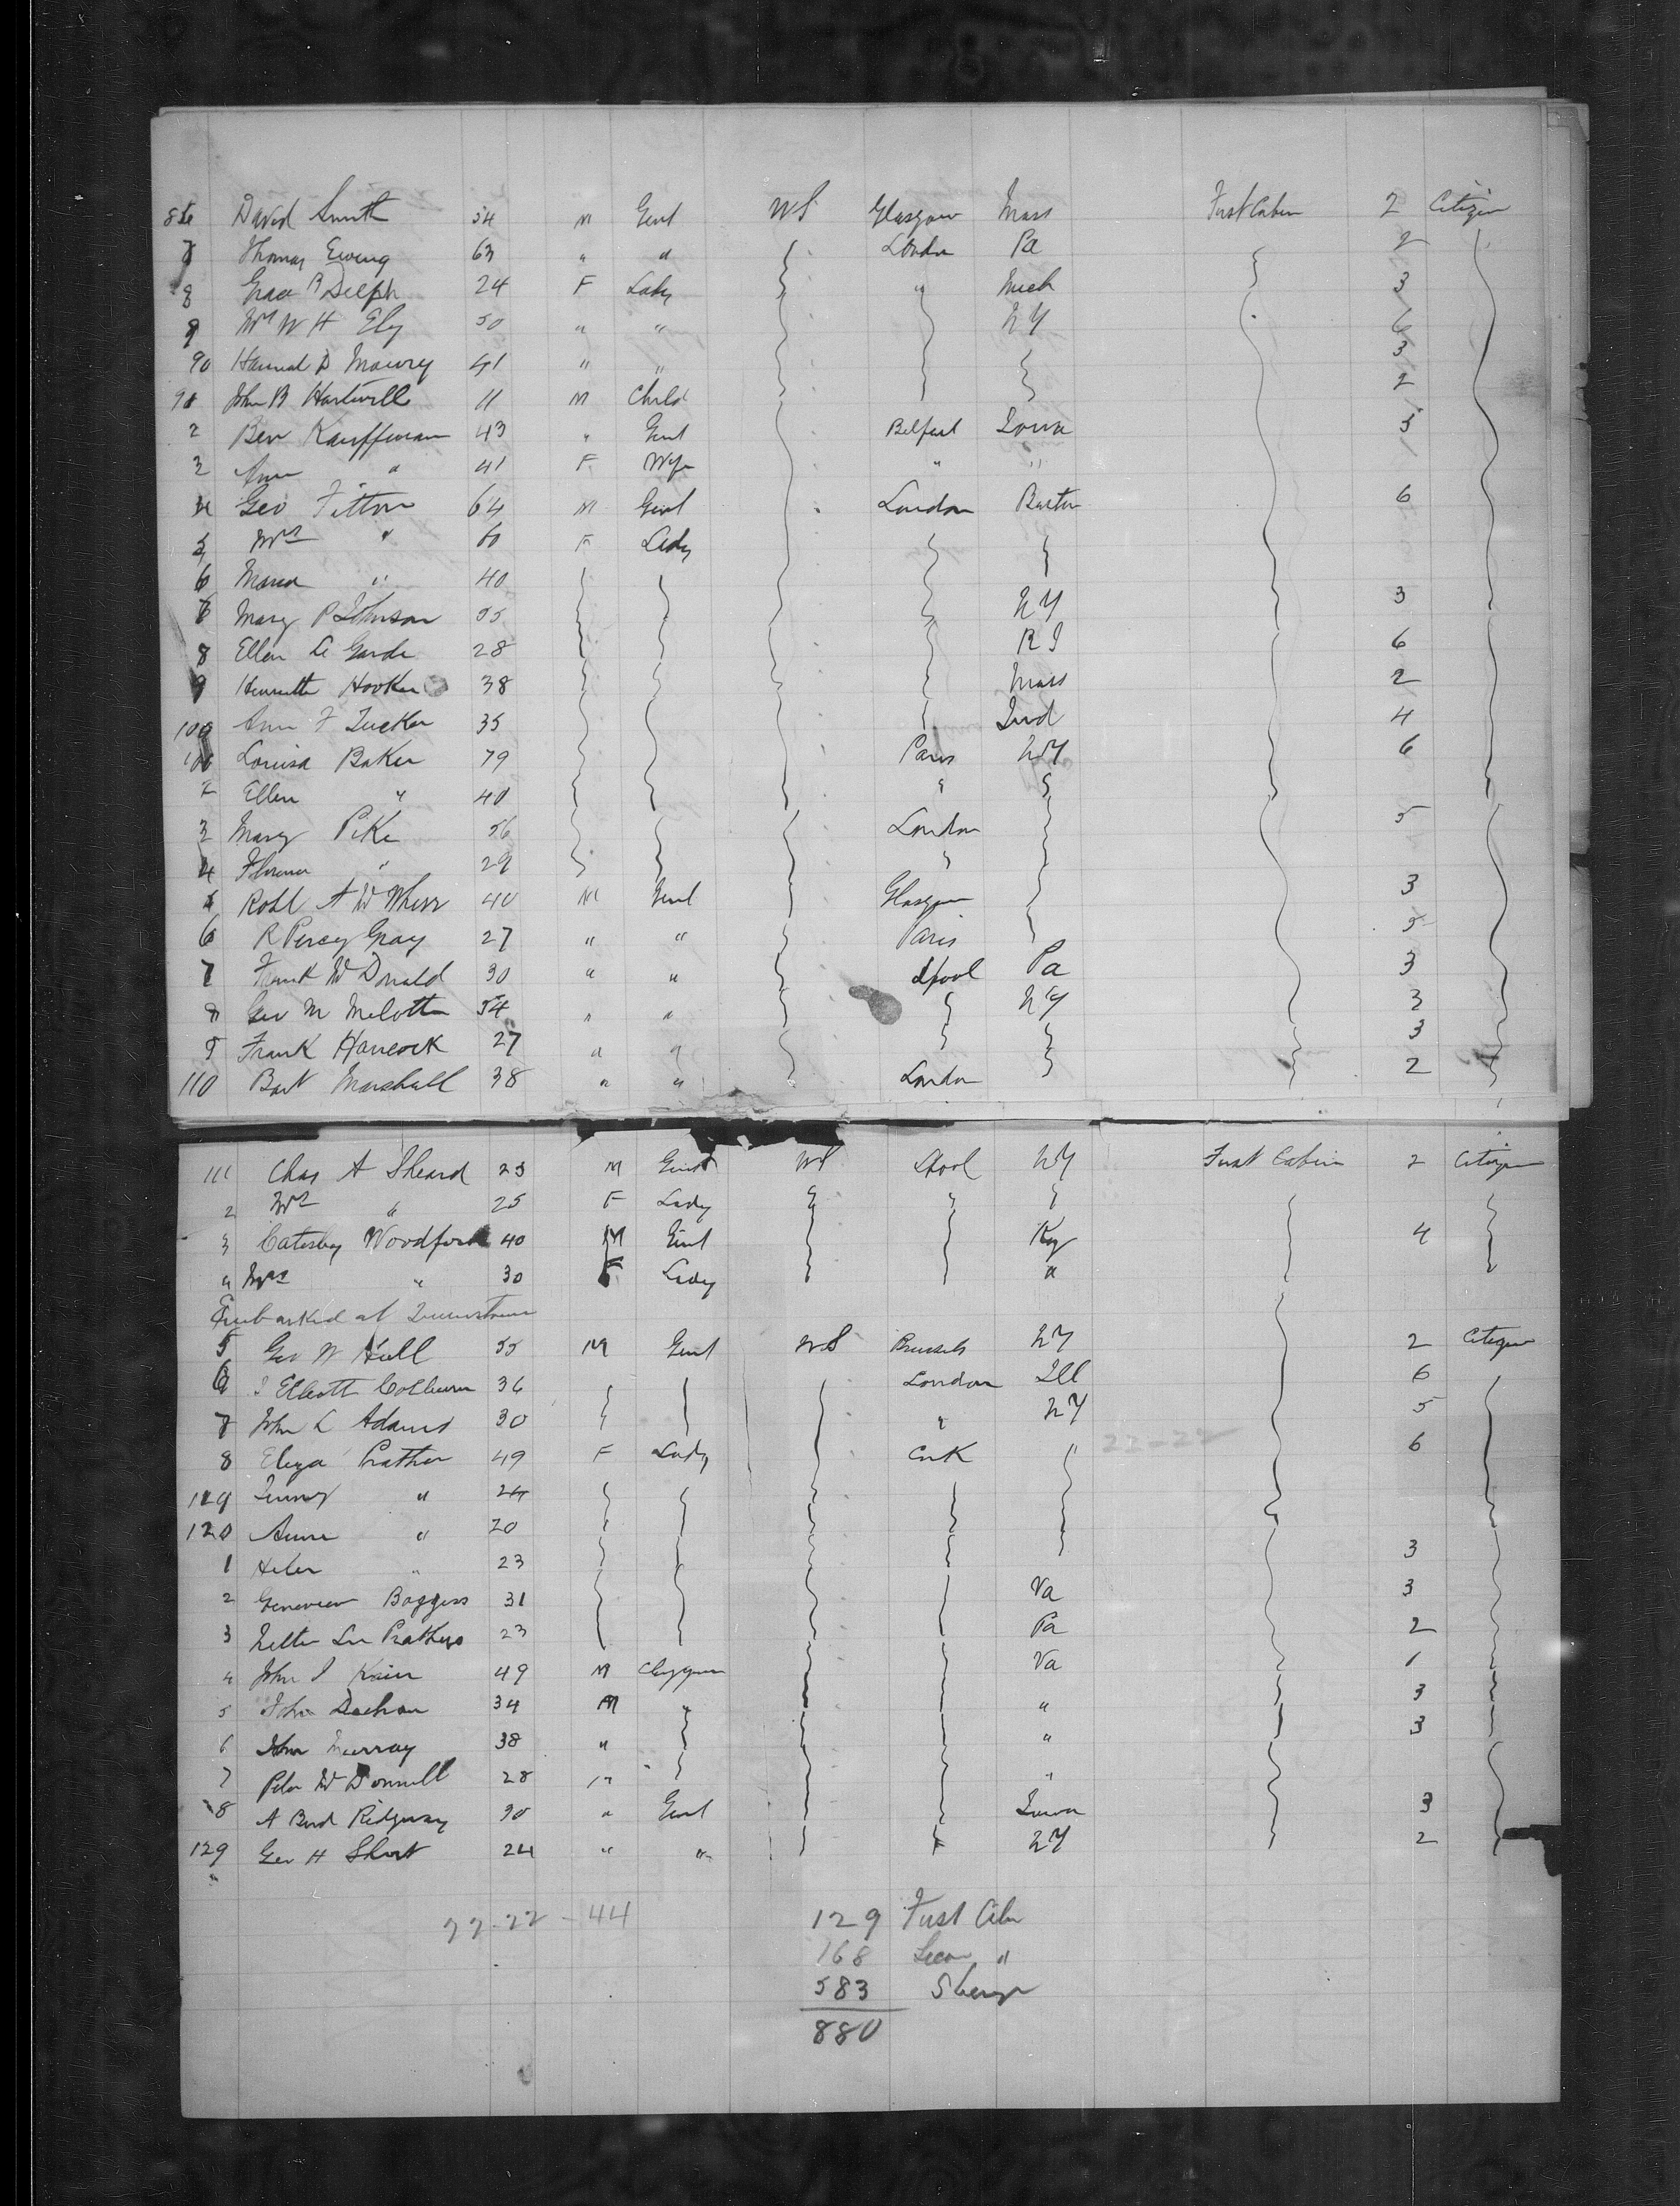 86 David Smith 54 M Gent US Glasgow Mass First Cabin 2 Citizen
7 Thomas Ewing 63 " " London Pa 2
8 Grace 24 F Lady " Mich 3
9 Mrs W H Ely 50 " " NY 6
90 Hannah D Mowry 41 " " 3
91 John B Hartwell 11 M Child 2
2 Ben Kauffman 43 " Gent Belfast Iowa 3
3 Ann " 41 F Wife " "
4 Geo Fitton 64 M Gent London Boston 6
5 Mrs " 60 F Lady
6 Maria " 40
Mary P Johnson 55 NY 3
8 Ellen 28 R I 6
9 Henrietta Hooker 38 Mass 2
100 Ann F Tucker 35 Ind 4
101 Louisa Baker 79 Paris NY 6
2 Ellen " 40 "
3 Mary Pike 56 London 5
4 Florence " 29 "
5 Robt A 40 M Gent Glasgow 3
6 R Percy Gray 27 " " Paris 5
7 Frank McDonald 30 " " Lpool Pa 3
8 Geo M 54 " " NY 2
9 Frank Hancock 27 " " 3
110 Bart Marshall 38 " " London 2
111 Chas A Sheard 23 M Gent US Lpool NY First Cabin 2 Citizen
2 Mrs " 25 F Lady
3 Catesby Woodford 40 M Gent Ky 4
4 Mrs " 30 F Lady "
Embarked at Queenstown
5 Geo W Hull 55 M Gent US Brussels NY 2 Citizen
6 Elliott 36 London Ill 6
7 John L Adams 30 " NY 5
8 Eliza Prather 49 F Lady Cork " 22-22 6
119 Jenny " 24
120 Anna " 20
1 Helen " 23 3
2 Genevieve Boggess 31 Va 3
3 Nettie Prathers 23 Pa 2
4 John J Kain 49 M Clergyman Va 1
5 John 34 M " " 3
6 John Murray 38 " " 3
7 Peter McDonnell 28 " "
8 A Bird Ridgway 30 " Gent Iowa 3
129 Geo H Short 24 " " NY 2
"
22-22-44
129 First Cabin
168 Secon "
583 Steerage
880